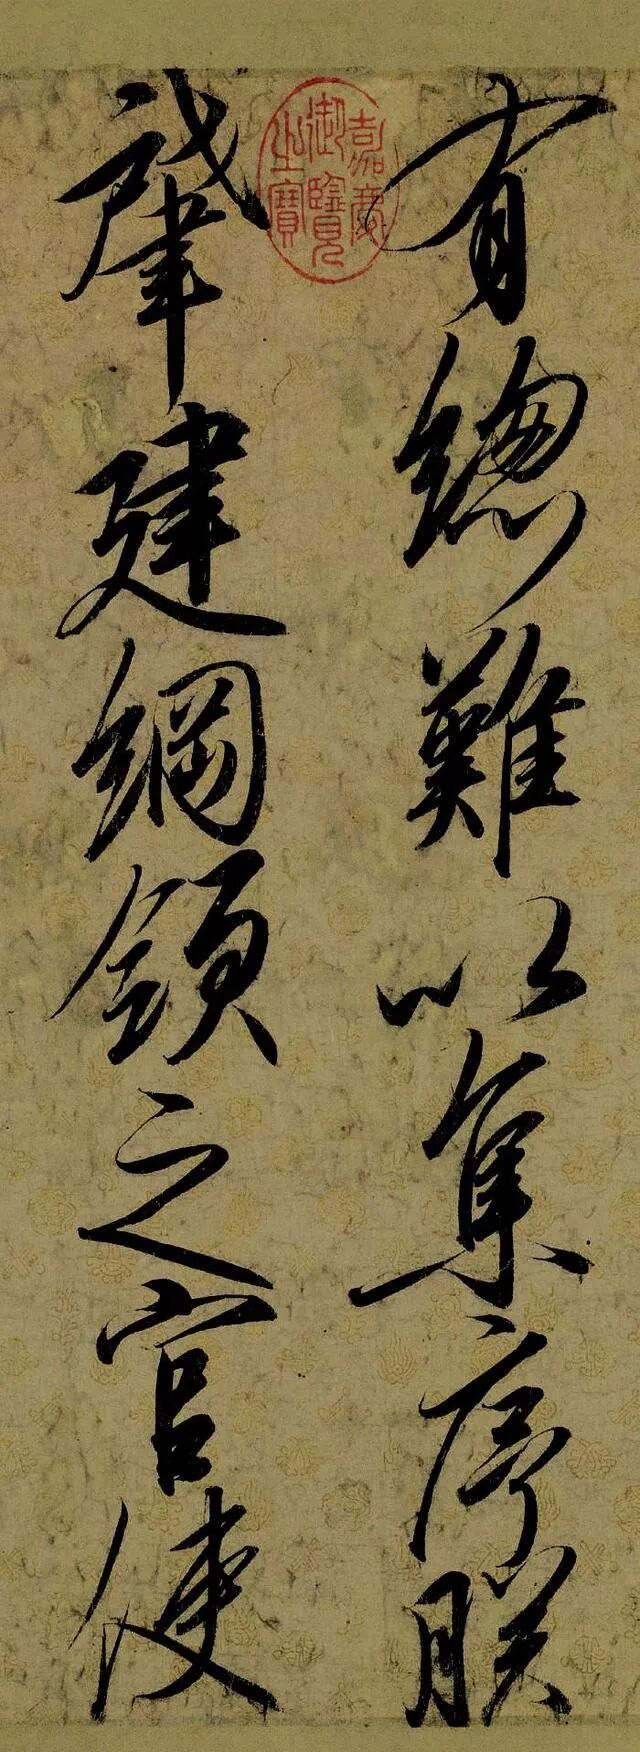 有總難以集序朕
肇建綱領之官使
嘉慶御覽之寶